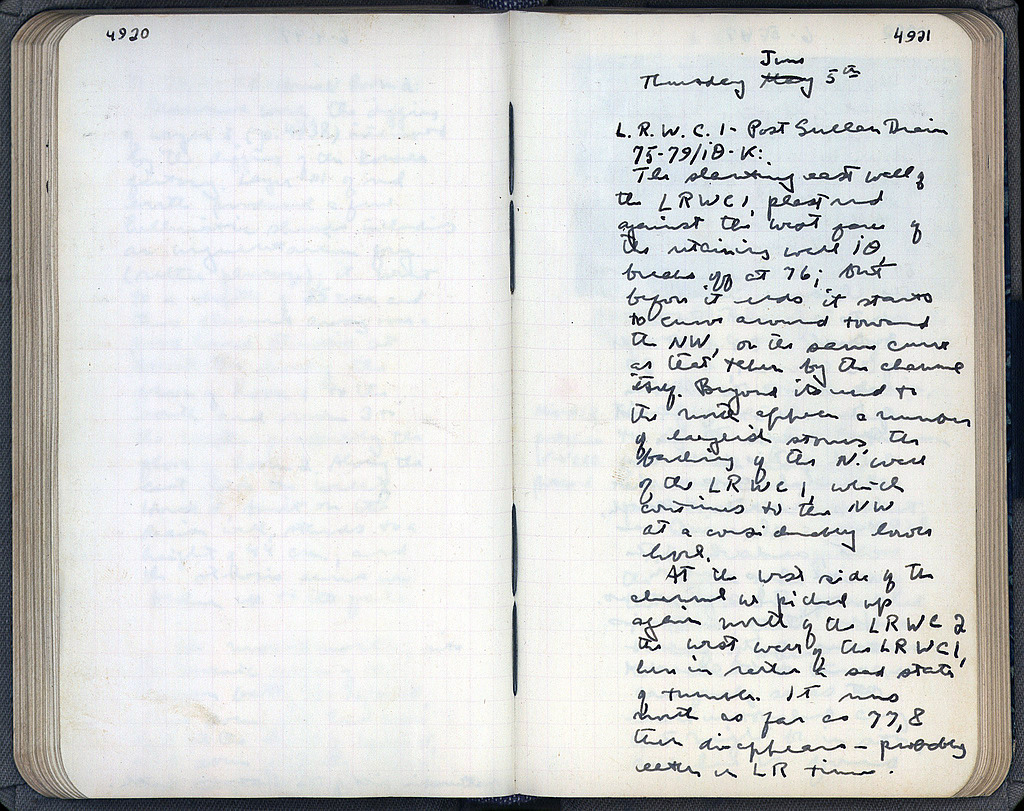 4920
4921
June
Thursday May 5th
L.R.W.C. 1 - Post Sullan Drain
75-79/ΙΘ-Κ:
The slanting east wall of
the LRWC1, plastered
against the west face of
the retaining wall ΙΘ,
breaks off at 76; but
before it ends it starts
to curve around toward
the NW, on the same curve
as that taken by the channel
itself. Beyond its end to
the north appear a number
of large stones, the
packing of the N. wall
of the LRWC1, which
continues to the NW
at a considerably lower
level.
At the west side of the
channel we picked up
again north of the LRWC2
the west wall of the LRWC1,
here in rather a sad state
of tumble. It runs
north as far as 77,8
then disappears - probably
in LR times.